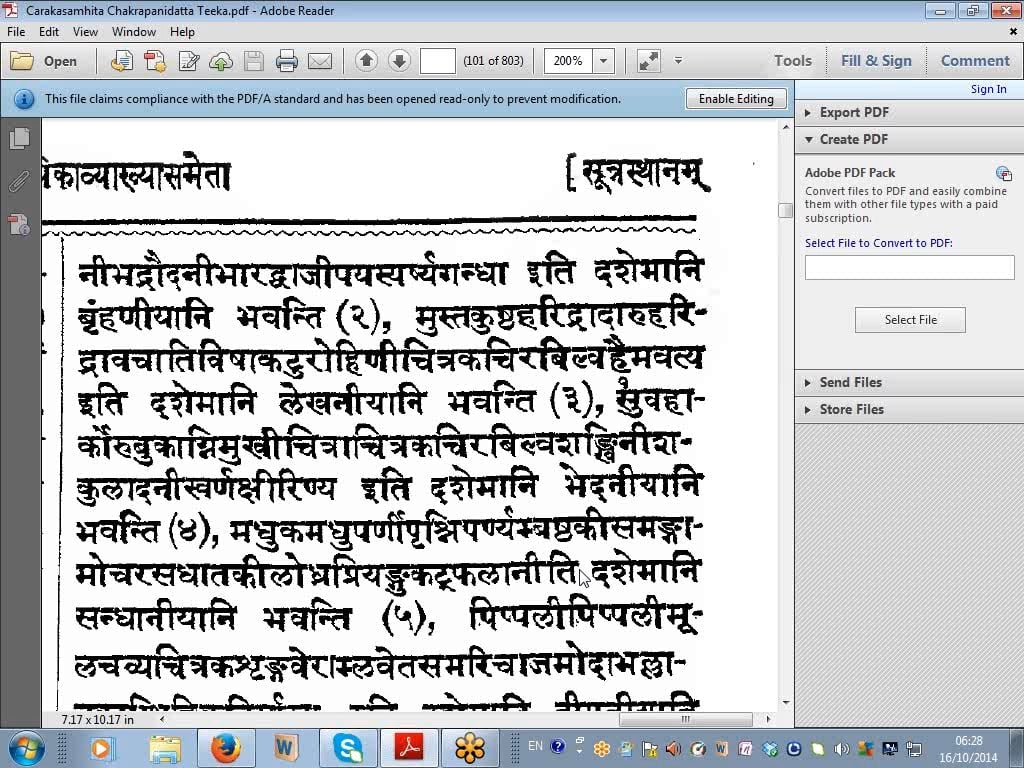 Carakasamhita Chakrapanidatta Teeka.pdf - Adobe Reader
File Edit View Window Help
Open (101 of 803) 200% Tools Fill & Sign Comment
This file claims compliance with the PDF/A standard and has been opened read-only to prevent modification. Enable Editing
Sign In
Export PDF
Create PDF
Adobe PDF Pack
Convert files to PDF and easily combine
them with other file types with a paid
subscription.
Select File to Convert to PDF:
Select File
Send Files
Store Files
पिकाव्याख्यासमेता [ सूत्रस्थानम्
नीभद्रौदनीभारद्वाजीपयस्यर्ष्यगन्धा इति दशेमानि
बृंहणीयानि भवन्ति (२), मुस्तकुष्ठहरिद्रादारुहरि-
द्रावचातिविषाकटुरोहिणीचित्रकचिरबिल्वहैमवत्य
इति दशेमानि लेखनीयानि भवन्ति (३), सुवहा-
र्कोरुबुकाग्निमुखीचित्राचित्रकचिरबिल्वशङ्खिनीश-
कुलादनीस्वर्णक्षीरिण्य इति दशेमानि भेदनीयानि
भवन्ति (४), मधुकमधुपर्णीपृश्निपर्ण्यम्बष्ठकीसमङ्गा-
मोचरसधातकीलोध्रप्रियङ्गुकट्फलानीति दशेमानि
सन्धानीयानि भवन्ति (५), पिप्पलीपिप्पलीमू-
लचव्यचित्रकशृङ्गवेराम्लवेतसमरिचाजमोदाभल्ला-
7.17 x 10.17 in
EN 06:28
16/10/2014